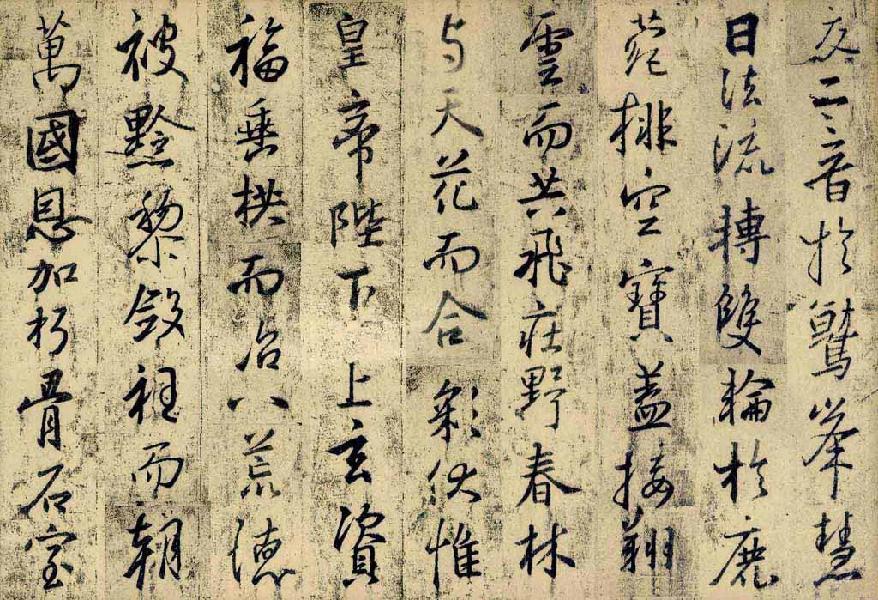 交二音於鷲峯慧
日法流轉雙輪於鹿
菀排空寶蓋接翔
雲而共飛莊野春林
与天花而合彩伏惟
皇帝陛下上玄資
福垂拱而治八荒德
被黔黎斂衽而朝
萬國恩加朽骨石室